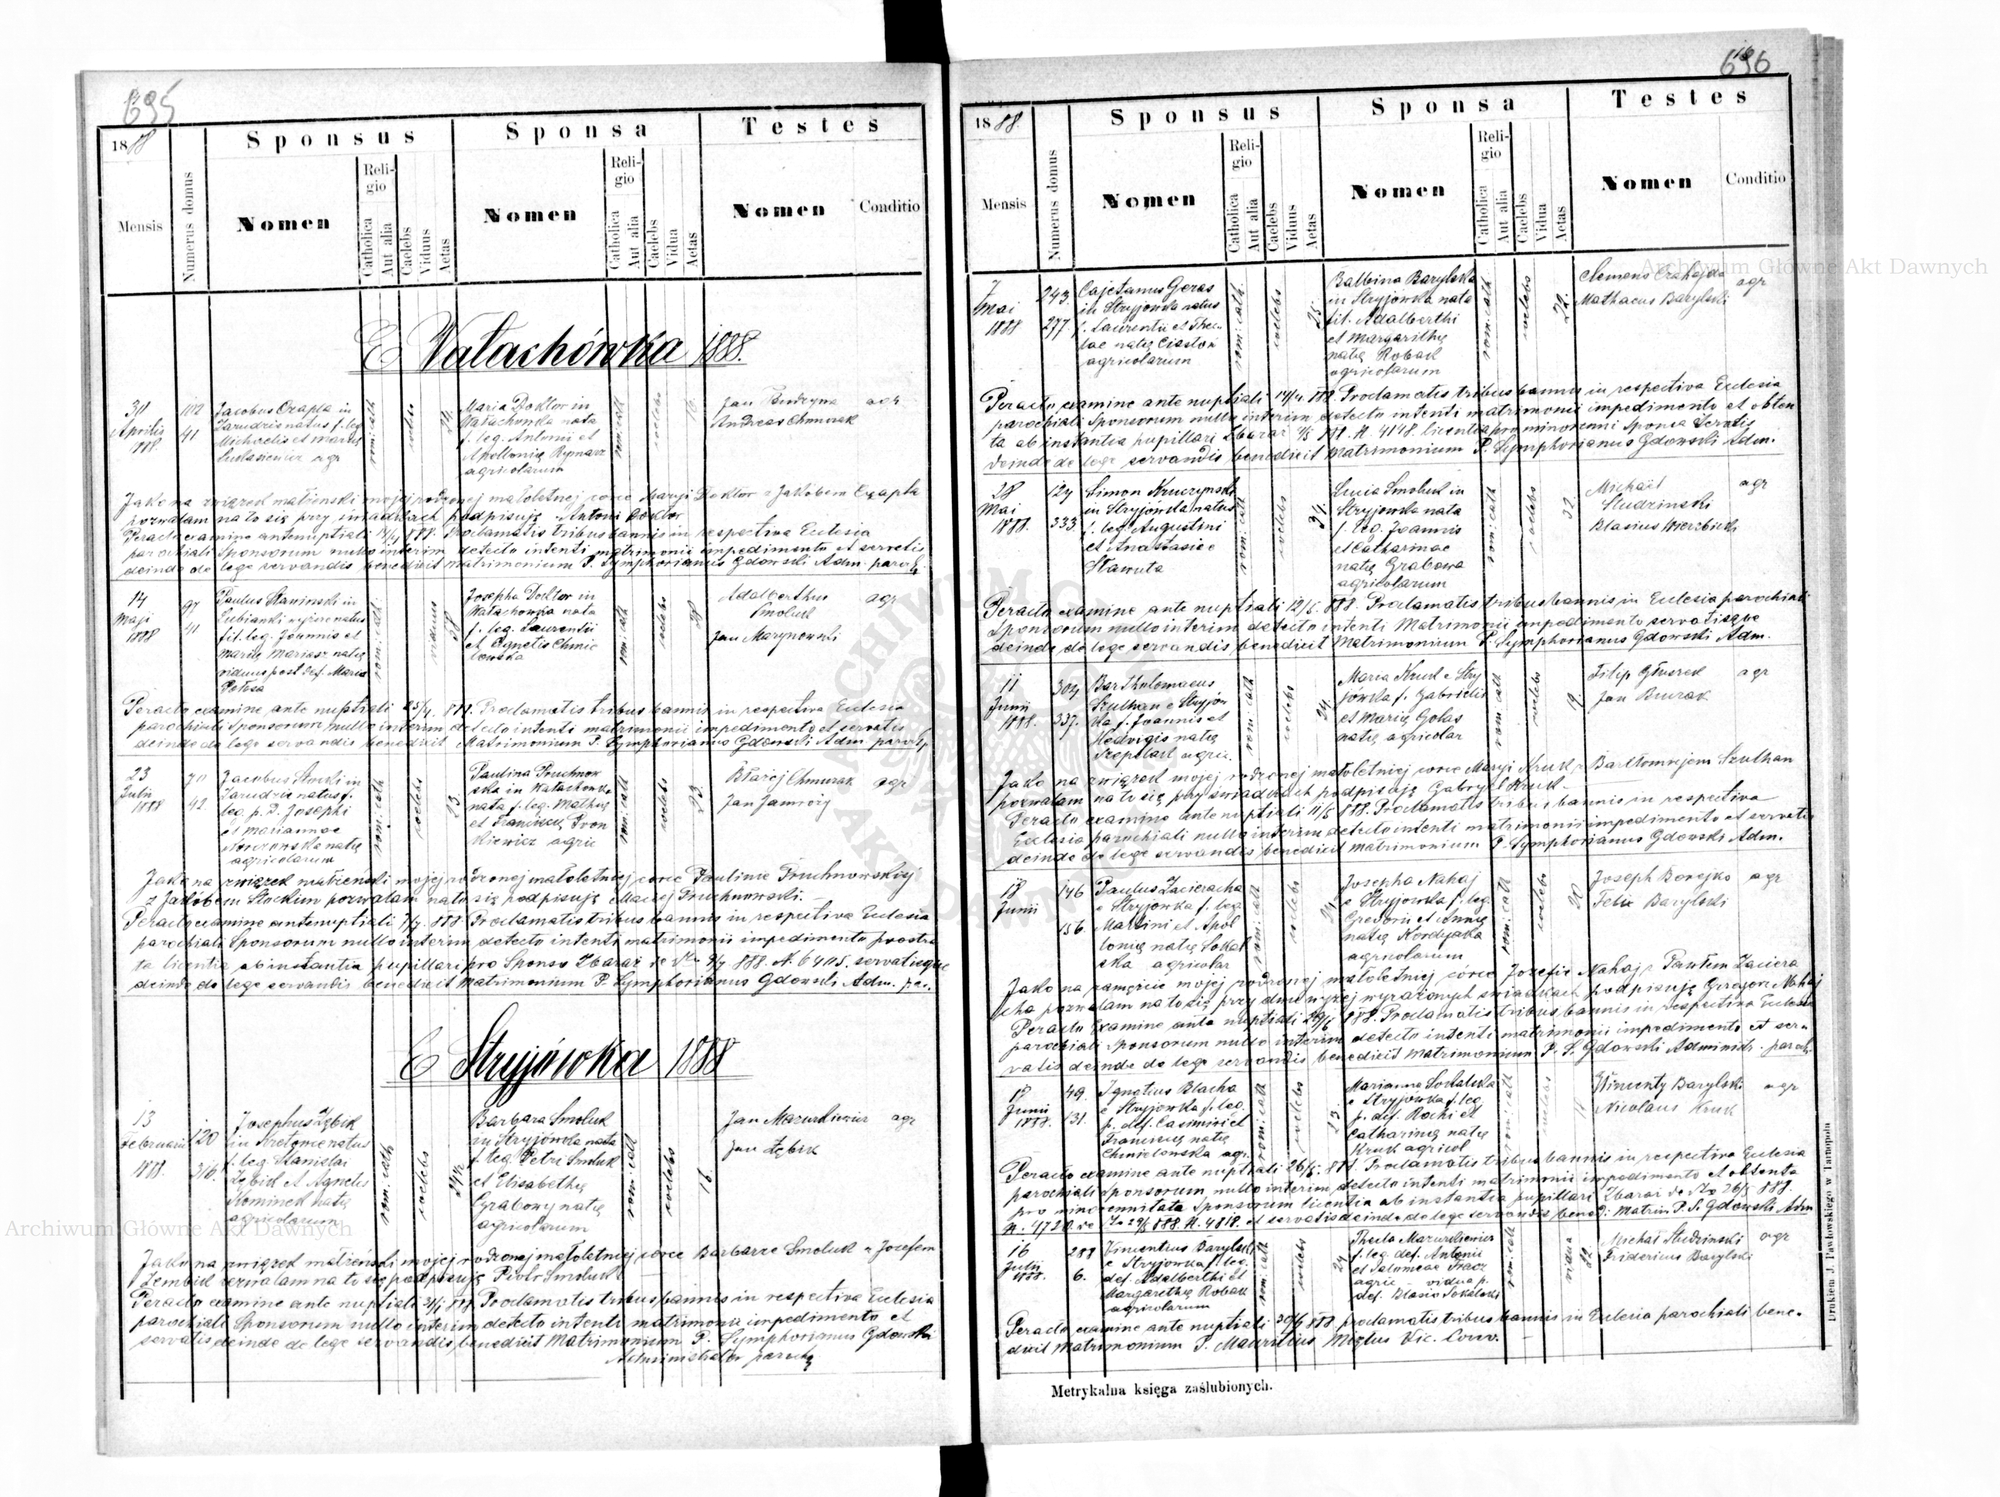 695
1888
Sponsus
Sponsa
Testes
Mensis
Numerus domus
Nomen
Religio
Catholica
Aut alia
Caelebs
Viduus
Aetas
Nomen
Religio
Catholica
Aut alia
Caelebs
Vidua
Aetas
Nomen
Conditio
E Wałachówka 1888.
30
Aprilis
1888.
102
41
Jacobus Czapla in
Zarudzie natus f. leg.
Michaelis et Mariae
rom: cath
caelebs
24
Maria Doktor in
Wałachówka nata
f. leg. Antonii et
Apolloniae Rymarz
agricolarum
rom: cath
caelebs
16
Jan Budzyna agr
Andreas Chmurak
Jako na związek małżeński mojej rodzonej małoletniej córce Maryi Doktor z Jakóbem Czapla
pozwalam na to się przy świadkach podpisuję Antoni Doktor
Peracto examine antenuptiali 888. Proclamatis tribus bannis in respectiva Eclesia
parochiali Sponsorum nullo interim detecto intenti matrimonii impedimento et servatis
deinde de lege servandis benedixit matrimonium P. Symphorianus Gdowski Adm. paroch.
14
Maji
1888
97
41
Paulus Stawinski in
Łubianki wyższe natus
fil. leg. Joannis et
Mariae Mariasz natae
viduus post def. Maria
Petesa
rom: cath
viduus
38
Josepha Doktor in
Wałachówka nata
f. leg. Laurentii
et Agnetis Chmie
lowska
rom: cath
caelebs
38
Adalberthus agr
Smoluk
Jan Marynowski
Peracto examine ante nuptiali 25/4. 888. Proclamatis tribus bannis in respectiva Eclesia
parochiali Sponsorum nullo interim detecto intenti matrimonii impedimento et servatis
deinde de lege servandis benedixit Matrimonium P. Symphorianus Gdowski Adm. paroch.
23
Julii
1888
70
42
Jacobus Stocki in
Zarudzie natus f.
leg. p. D. Josephi
et Mariannae
natae
agricolarum
rom: cath
caelebs
23.
Paulina Pruchnow
ska in Wałachówka
nata f. leg. Mathiae
et Franciscae Iwon
kiewicz agric
rom: cath
caelebs
23
Błażej Chmurak agr
Jan Jamroży
Jako na związek małżeński mojej rodzonej małoletniej córce Paulinie Pruchnowskiej
z Jakóbem Stockim pozwalam na to się podpisuję Maciej Pruchnowski.
Peracto examine antenuptiali 7/7. 888. Proclamatis tribus bannis in respectiva Eclesia
parochiali Sponsorum nullo interim detecto intenti matrimonii impedimento praestita
licentia ab instantia pupillari pro Sponso Zbaraż de dto 9/7 888. N. 6405. servatisque
deinde de lege servandis benedixit Matrimonium P. Symphorianus Gdowski Adm. par.
E Stryjówka 1888
13
Februarii
1888.
120
316.
Josephus Zębik
in Kretowce natus
f. leg. Stanislai
Zębik et Agnetis
Kominek natae
agricolarum
rom: cath
caelebs
24½
Barbara Smoluk
in Stryjówka nata
f. leg. Petri Smoluk
et Elisabethae
Grabowy natae
agricolarum
rom: cath
caelebs
16.
Jan Mazurkiewicz agr
Jan Zębik
Jako na związek małżeński mojej rodzonej małoletniej córce Barbarze Smoluk z Józefem
Zembik zezwalam na to się podpisuję Piotr Smoluk
Peracto examine ante nuptiali 888. Proclamatis tribus bannis in respectiva Eclesia
parochiali Sponsorum nullo interim detecto intenti matrimonii impedimento et
servatis deinde de lege servandis benedixit Matrimonium P. Symphorianus Gdowski
Administrator parochiae
696
1888.
Sponsus
Sponsa
Testes
Mensis
Numerus domus
Nomen
Religio
Catholica
Aut alia
Caelebs
Viduus
Aetas
Nomen
Religio
Catholica
Aut alia
Caelebs
Vidua
Aetas
Nomen
Conditio
7
Mai
1888
243.
277.
Cajetanus Geras
in Stryjówka natus
f. Laurentii et Thec-
lae natae Ciastoń
agricolarum
rom: cath
caelebs
25.
Balbina Barylska
in Stryjówka nata
fil. Adalberthi
et Margarithae
natae Robak
agricolarum
rom: cath
caelebs
22.
Clemens Czahajda agr
Mathaeus Barylski
Peracto examine ante nuptiali 14/4. 888. Proclamatis tribus bannis in respectiva Eclesia
parochiali Sponsorum nullo interim detecto intenti matrimonii impedimento et obten
ta ab instantia pupillari Zbaraż 888. N. 4148. licentia pro minorenni Sponsa Servatis
deinde de lege servandis benedixit Matrimonium P. Symphorianus Gdowski Adm.
28
Mai
1888.
124
333.
Simon Kruczynski
in Stryjówka natus
f. leg. Augustini
et Anastasiae
Stawuta
rom: cath
caelebs
34.
Lucia Smoluk in
Stryjówka nata
f. leg. Joannis
et Catharinae
natae Grabowa
agricolarum
rom: cath
caelebs
32.
Michael agr
Studzinski
Blasius Wierzbicki
Peracto examine ante nuptiali 12/5. 888. Proclamatis tribus bannis in Eclesia parochiali
Sponsorum nullo interim detecto intenti Matrimonii impedimento servatisque
deinde de lege servandis benedixit Matrimonium P. Symphorianus Gdowski Adm.
11
Junii
1888.
304
337.
Bartholomaeus
Szulhan e Stryjów
ka f. Joannis et
Hedvigis natae
Szeptak agric.
rom: cath
caelebs
24.
Maria Kruk e Stry
jówka f. Gabrielis
et Mariae Gołas
natae agricolar
rom: cath
caelebs
19.
Filip Głuszek agr
Jan Burak
Jako na związek mojej rodzonej małoletniej córce Maryi Kruk z Bartłomiejem Szulhan
pozwalam na to się przy świadkach podpisuję Gabryel Kruk.
Peracto examine ante nuptiali 11/5 888. Proclamatis tribus bannis in respectiva
Eclesia parochiali nullo interim detecto intenti matrimonii impedimento et servatis
deinde de lege servandis benedixit Matrimonium P. Symphorianus Gdowski Adm.
18
Junii
146
156.
Paulus Zacieracha
e Stryjówka f. leg.
Martini et Apol
loniae natae Sokal
ska agricolar
rom: cath
caelebs
24.
Josepha Nahaj
e Stryjówka f. leg.
Gregorii et Annae
natae Kordyjaka
agricolarum
rom: cath
caelebs
20
Joseph Borejko agr
Felix Barylski
Jako na zamęźcie mojej rodzonej małoletniej córce Józefie Nahaj z Pawłem Zaciera
cha pozwalam na to się przy dwu wyżej wyrażonych świadkach podpisuję Grzegorz Nahaj
Peracto Examine ante nuptiali 888. Proclamatis tribus bannis in respectiva Eclesia
parochiali Sponsorum nullo interim detecto intenti matrimonii impedimento et ser-
vatis deinde de lege servandis benedixit Matrimonium P. S. Gdowski Administr. paroch.
18
Junii
1888.
49.
131.
Ignatius Blacha
e Stryjówka f. leg.
p. def. Casimiri et
Franciscae natae
Chmielowska agr.
rom: cath
caelebs
23.
Marianna Sokalska
e Stryjówka f. leg
p. def. Rochi et
Catharinae natae
Kruk agricol
rom: cath
caelebs
18
Wincenty Barylski agr
Nicolaus Kruk
Peracto examine ante nuptiali 26/5. 888. Proclamatis tribus bannis in respectiva Eclesia
parochiali Sponsorum nullo interim detecto intenti matrimonii impedimento et obtenta
pro minorennitate Sponsorum licentia ab instantia pupillari Zbaraż de dto 26/5 888.
N. 4720. 888. N. 4818. et servatis deinde de lege servandis bened: Matrim P. S. Gdowski Adm
16
Julii
1888.
288
6.
Vincentius Barylski
e Stryjówka f. leg.
def. Adalberthi et
Margarethae Robak
agricolarum
rom: cath
caelebs
24
Thecla Mazurkiewicz
f. leg. def. Antonii
et Salomeae Tracz
agric - vidua p.
def. Blasio Sokalski
rom: cath
vidua
32.
Michał Studzinski agr
Fridericus Barylski
Peracto examine ante nuptiali 30/6 888. proclamatis tribus bannis in Eclesia parochiali bene-
dixit Matrimonium P. Mauritius Mictus Vic. Conv.
Metrykalna księga zaślubionych.
Drukiem J. Pawłowskiego w Tarnopolu
Archiwum Główne Akt Dawnych
Archiwum Główne Akt Dawnych